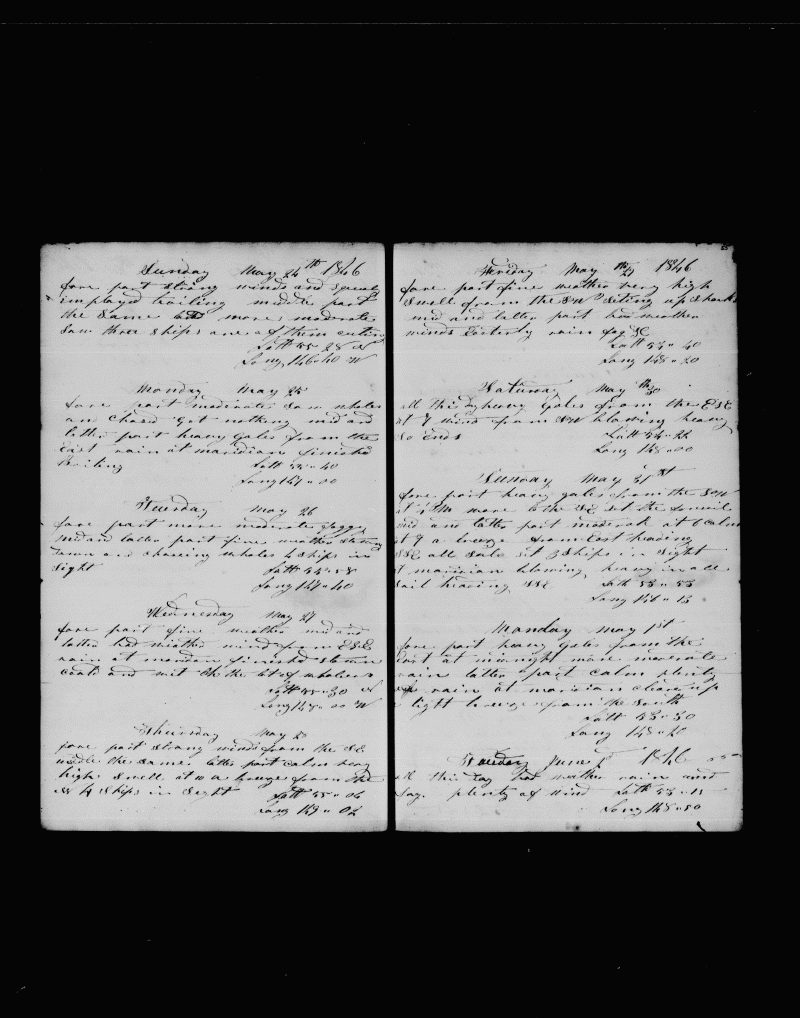 Sunday May 24th 1846
fore part strong winds and squaly
imployed boiling middle part
the same but more moderate
Saw three Ships one of them cuting
Latt 55 28 N
Long 146 40 W
Monday May 25
fore part moderate Saw whales
and chased got nothing mid and
latter part heavy gales from the
East rain at maridian finished
boiling
Latt 55 " 40
Long 147 " 00
Tuesday May 26
fore part more moderate foggy
mid and latter part fine weather
down and chaseing whales 4 Ships in
Sight
Latt 55 " 58
Long 147 " 40
Wednesday May 27
fore part fine weather mid and
latter bad weather wind from ESE
rain at finished
Latt 55 " 30 N
Long 00 W
Thursday May 28
fore part strong winds from the SE
middle the same latter part calm very
high Swell at a breeze from the
4 Ships in Sight
Latt 55 " 06
Long 149 " 04
Friday May th 1846
fore part fine weather very high
Swell from the SW Seting up Shooks
mid and latter part bad weather
winds Easterly rain fog &c
Latt 40
Long 148 " 20
Saturday May 30th
all this day heavy Gales from the ESE
at 9 wind from SW blowing heavy
So Ends
Latt
Long 148 " 00
Sunday May 31st
fore part heavy gales from the SSW
at 4 PM more to the set the foresail
mid and latter part moderate at 6 Calm
at 9 a breeze from East heading
SSE all Sale set 3 Ships in Sight
at maridian blowing heavy in all
Sail heading SSE Latt 53 " 53
Long 146 " 13
Monday May 1st
fore part heavy Gales from the
East at midnight more moderate
rain latter part calm plenty
of rain at maridian clears up
a light breeze from the South
Latt 53 " 30
Long 148 " 20
Tuesday June 2d 1846
all this day bad weather rain and
fog. plenty of wind Latt 53 " 18
Long 148 " 50